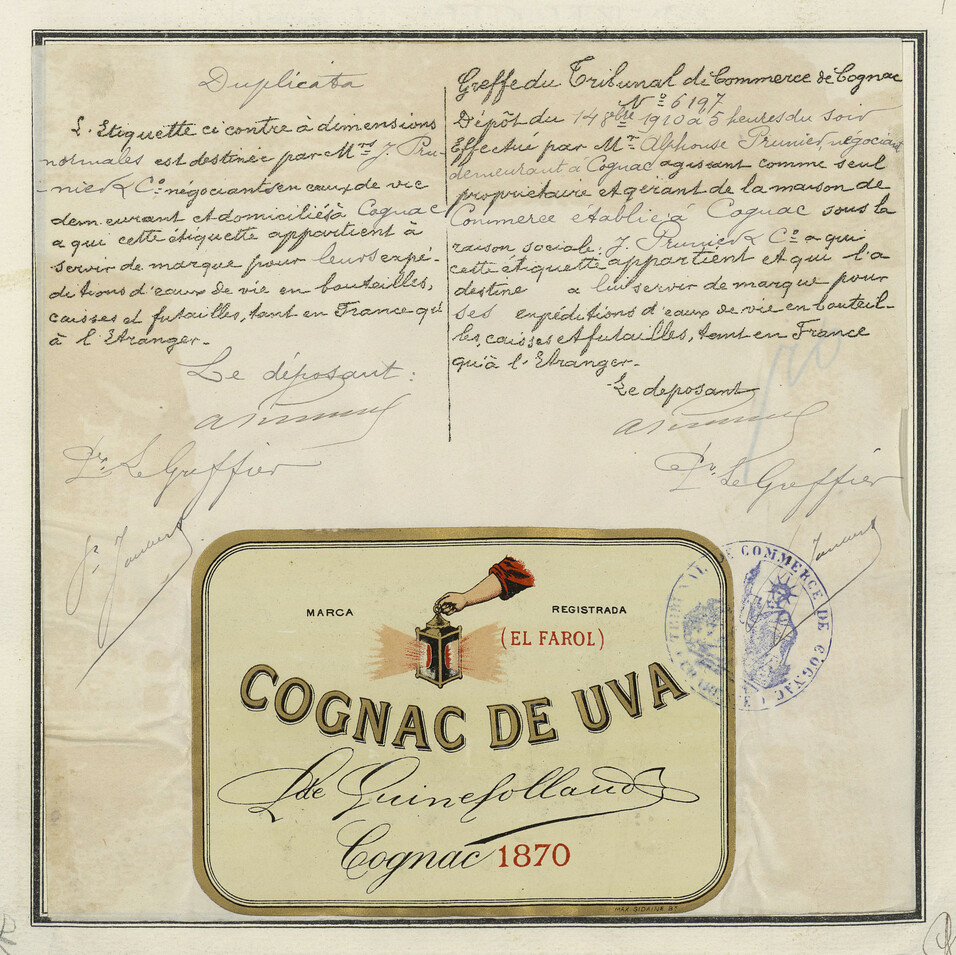 Duplicata
L'Etiquette ci contre à dimensions
normales est destinée par Mrs J. Pru-
-nier & Co négociants en eaux de vie
demeurant et domiciliés à Cognac
a qui cette étiquette appartient à
servir de marque pour leurs expé-
ditions d'eaux de vie en bouteilles,
caisses et futailles, tant en France qu'
à l'Etranger.-
Le déposant:
Pr. Le Greffier
Greffe du Tribunal de Commerce de Cognac
No 6197
Dépôt du 14 9bre 1910 à 5 heures du soir
Effectué par Mr Alphonse Prunier, négociant
demeurant à Cognac agissant comme seul
propriétaire et gérant de la maison de
Commerce établie à Cognac sous la
raison sociale: J. Prunier & Co a qui
cette étiquette appartient et qui l'a
destine a lui servir de marque pour
ses expéditions d'eaux de vie en bouteil-
les, caisses et futailles, tant en France
qu'à l'Etranger.-
Le deposant
Pr. Le Greffier
TRIBUNAL DE COMMERCE DE COGNAC
MARCA REGISTRADA
(EL FAROL)
COGNAC DE UVA
Cognac 1870